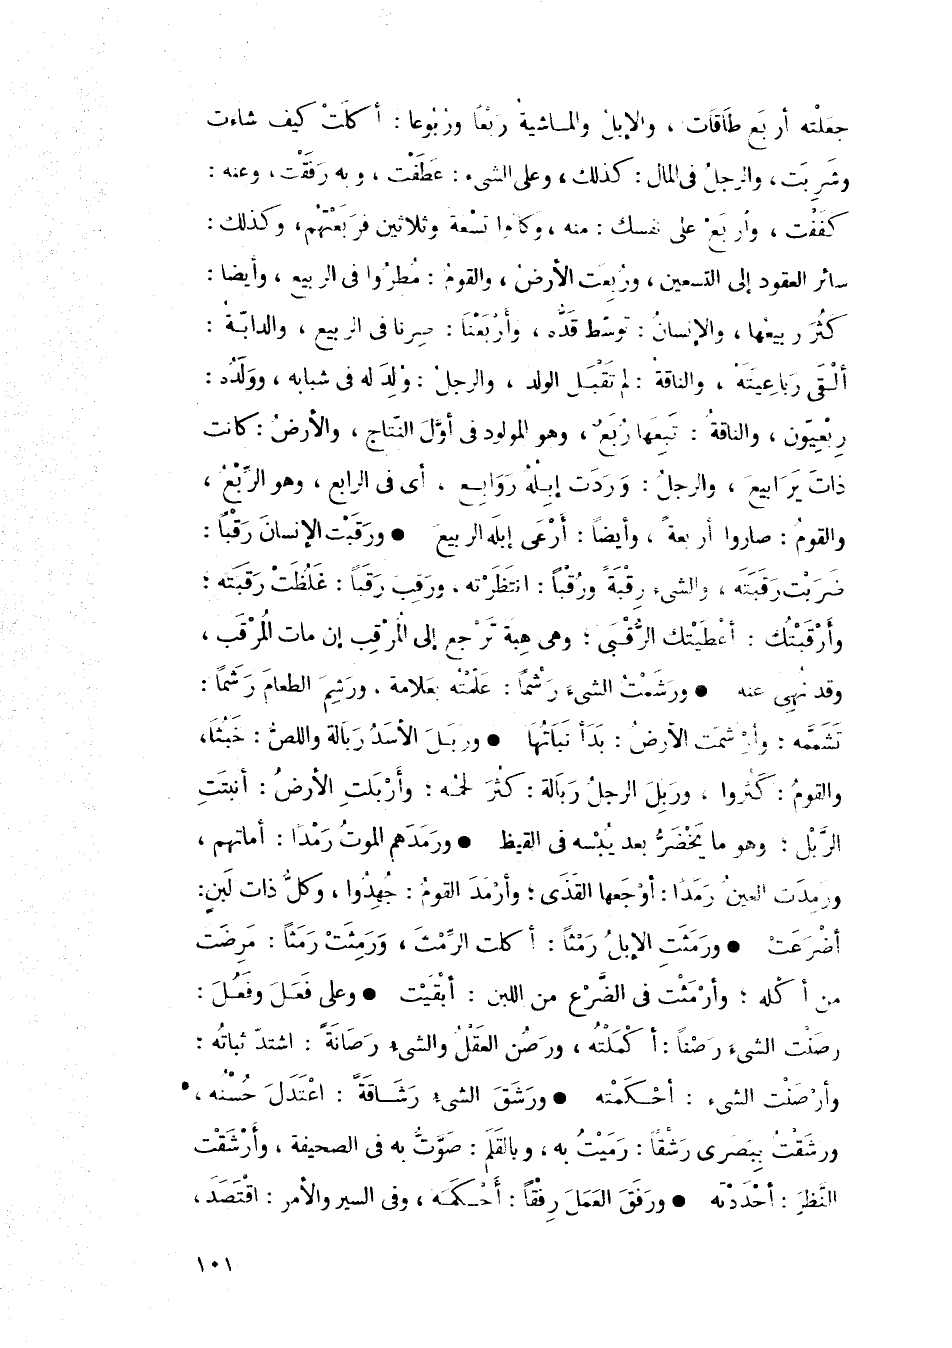 جعَلْته أربَع طَاقَات ، والإبلُ والمـاشيةُ رَبْعًا ورُبُوعا : أكلَتْ كيف شاءت
وشَرِبَت، والرجلُ فى المال : كذلك، وعلى الشىء : عَطَفْت ، وبه رَفَقْت، وعنه :
كفَفْت ، واربَعْ على نفسك : منه ، وكانوا تسْعة وثلاثين فرَبَعْتُهُم، وكذلك :
سائر العقود إلى التسعين ، ورُبِعَت الأرضُ ، والقومُ : مُطِرُوا فى الربيع ، وأيضا :
كثُرَ ربيعُها ، والإنسانُ : توسّط قَدُّه ، وأَرْبَعْنَا : صِرنا فى الربيع ، والدابّةُ :
ألْـقَى رَبَاعِيَتَهُ ، والناقةُ : لم تَقْبَـل الولد ، والرجلُ : وُلِدَ له فى شبابه ، ووَلَدُه :
رِبْعِيّون ، والناقةُ : تَبِعَها رُبَعٌ ، وهو المولود فى أوَّل النّتاج ، والأرضُ : كانت
ذاتَ يَرَابيعَ ، والرجلُ : وَرَدَت إبِـلهُ رَوَابِـع ، أى فى الرابع ، وهو الرِّبْعُ ،
والقومُ : صاروا أربعةً ، وأيضاً : أَرْعَى إبلَه الربيعَ ● ورَقَبْت الإنسانَ رَقْبًا :
ضَرَبْت رَقَبَتَه ، والشىء رِقْبَةً ورُقْباً : انتَظَرْته . ورَقِبَ رَقَباً : غَلُظَتْ رَقَبَته ؛
وأَرْقَبْتُك : أعْطَيْتك الرُّقْبَى ؛ وهى هِبة تَرْجع إلى المُرْقِب إن مات المُرْقَب ،
وقد نُهِى عنه ● ورَشَمْتُ الشىءَ رَشْمًا : عَلَمْتُه بعَلامة . ورَشِمَ الطعامَ رَشَمًا :
تَشَمَّمه : وأرْشَمَت الأرضُ : بَدَأ نَبَاتُها ● ورَبَـلَ الأسَدُ رَبَالة واللصُّ : خَبُثَا،
والقومُ : كَثُروا ، ورَبِلَ الرجلُ رَبَالة : كثُرَ لحمُه ؛ وأَرْبَلَتِ الأرضُ : أنبتَتِ
الرَّبْل ؛ وهو ما يَخْضَرُّ بعد يُبْسه فى القيظ ● ورمَدَهم الموتُ رَمْدًا : أماتهم ،
ورَمِدَت العينُ رَمَدًا : أوْجَعها القَذَى ؛ وأرْمَدَ القومُ : جُهِدُوا ، وكلُّ ذات لَبنٍ:
أضْرَعَتْ ● ورَمَثَتِ الإبلُ رَمْثاً : أكلت الرِّمْثَ ، وَرَمِثَتْ رَمَثاً : مَرِضَت
من أكْله ؛ وأرْمَثْت فى الضَّرْع من اللبن : أبْقَيْت ● وعلى فَعَـلَ وفَعُـلَ :
رصَنْت الشىءَ رَصْناً : أكْمَلْتُه ، ورَصُن العَقْلُ والشىءُ رَصَانَةً : اشتدّ ثباتُه :
وأرْصَنْت الشىء : أحْـكَمْته ● ورَشَقَ الشىءُ رَشَـاقَةً : اعْتَدَلَ حُسْنُه ،
ورشَقْتُ بِبَصَرى رَشْقًا : رَمَيْتُ به ، وبالقَلَم : صَوَّتُّ به فى الصحيفة ، وأَرْشَقْت
النَّظَرَ : أحْدَدْته ● ورَفَقَ العَمَلَ رِفْقًا : أَحْـكَمَـه ، وفى السير والأمر : اقْتَصَدَ ،
١٠١